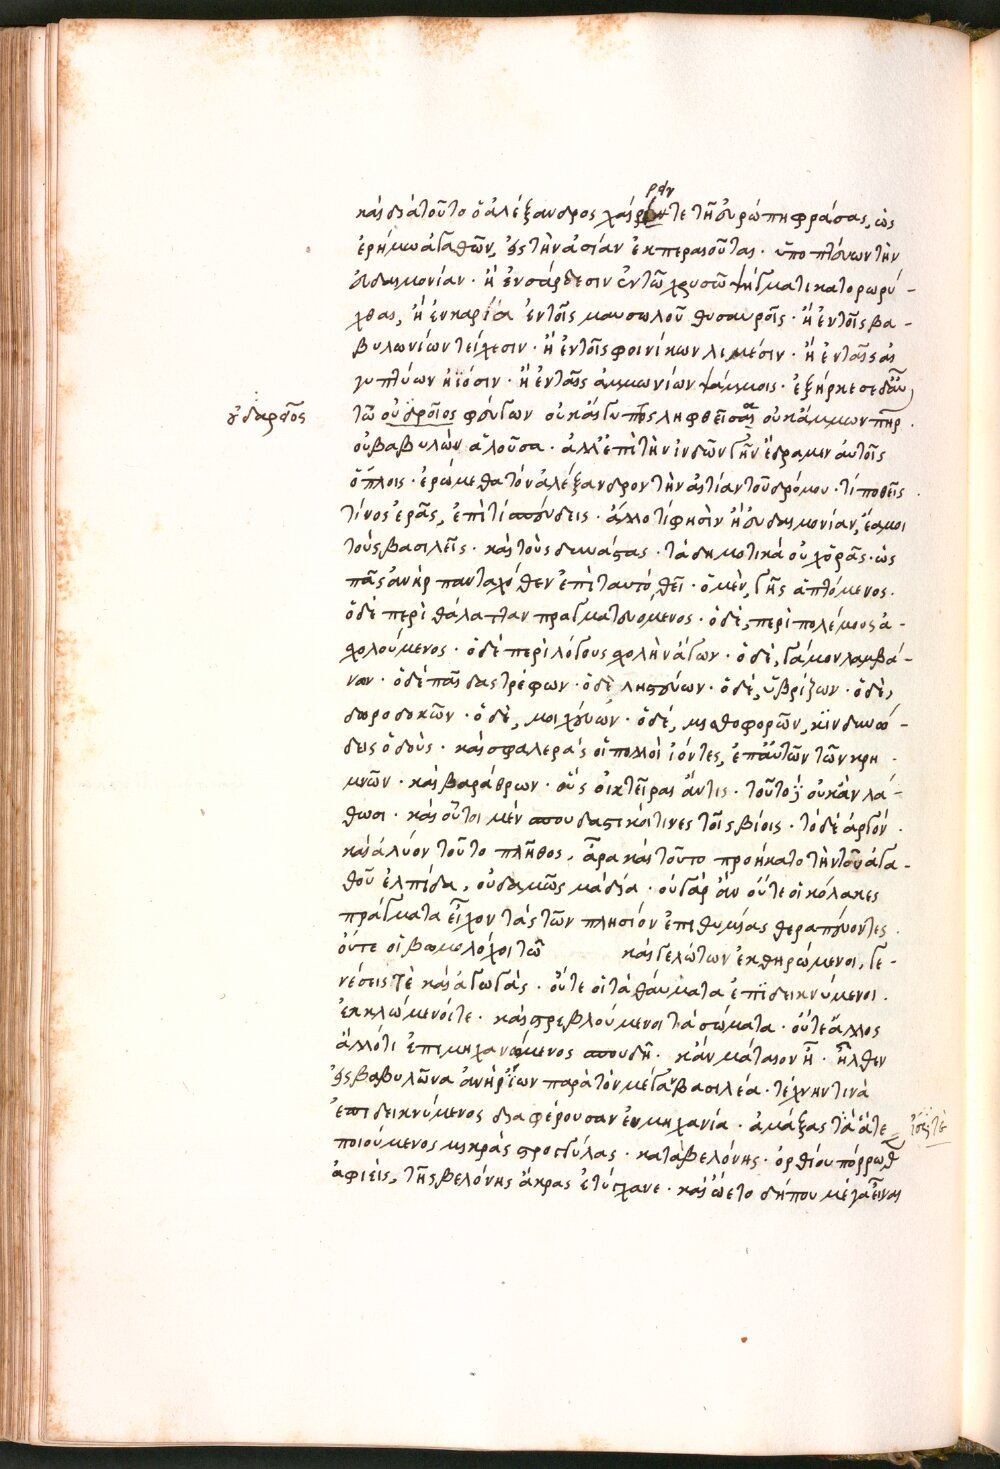 ρειν
καὶ διὰ τοῦτο ὁ ἀλέξανδρος χαίρειν τε τῇ εὐρώπῃ φράσας, ὡς
ἐρήμω ἀγαθῶν, εἰς τὴν ἀσίαν ἐκπεραιοῦται · ὑποπτεύων τὴν
εὐδαιμονίαν · ἢ ἐν σάρδεσιν ἐν τῶ χρυσῶ ψήγματι κατορωρύ-
χθαι, ἢ ἐν καρία ἐν τοῖς μαυσωλοῦ θυσαυροῖς · ἢ ἐν τοῖς βα-
βυλωνίων τείχεσιν · ἢ ἐν τοῖς φοινίκων λιμέσιν · ἢ ἐν ταῖς αἰ
γυπτίων ἠϊόσιν · ἢ ἐν ταῖς ἀμμωνίων ψάμμοις · ἐξήρκεσε δ᾽
τῶ οὐ δροῖος φεύγων οὐκ αἴγυπτος ληφθεῖσα οὐκ ἄμμων πηρ ·
οὐ βαβυλὼν ἁλοῦσα · ἀλλ᾽ ἐπὶ τὴν ἰνδῶν γῆν ἔδραμεν αὐτοῖς
ὅπλοις · ἐρώμεθα τὸν ἀλέξανδρον τὴν αἰτίαν τοῦ δρόμου · τί ποθεῖς
τίνος ἐρᾶς, ἐπὶ τί σπεύδεις · ἄλλο τί φησὶν ἢ εὐδαιμονίαν, ἔα μοι
τοὺς βασιλεῖς · καὶ τοὺς δυνάστας · τὰ δημοτικὰ οὐχ ὁρᾶς · ὡς
πᾶς ἀνὴρ πανταχόθεν ἐπὶ ταυτὸ θεῖ · ὁ μὲν, γῆς ἁπτόμενος ·
ὁ δὲ περὶ θάλατταν πραγματευόμενος · ὁ δὲ, περὶ πολέμους ἀ-
σχολούμενος · ὁ δὲ περὶ λόγους σχολὴν ἄγων · ὁ δὲ, γάμον λαμβά-
νων · ὁ δὲ παῖδας τρέφων · ὁ δὲ ληστεύων · ὁ δὲ, ὑβρίζων · ὁ δὲ,
δωροδοκῶν · ὁ δὲ, μοιχεύων · ὁ δὲ, μισθοφορῶν, κϊνδυνώ-
δεις ὁδοὺς · καὶ σφαλερὰς οἱ πολλοὶ ἰόντες, ἐπ᾽ αὐτῶν τῶν κρη ·
μνῶν · καὶ βαράθρων · οὓς οἰκτεῖραι ἄν τις · τοῦτο οὐκ ἂν λά-
θωσι · καὶ οὗτοι μὲν σπουδαστικοί τινες τοῖς βίοις · τὸ δὲ ἀργὸν ·
καὶ ἀλύον τοῦτο πλῆθος, ἆρα καὶ τοῦτο προήκατο τὴν τοῦ ἀγα-
θοῦ ἐλπίδα, οὐδαμῶς μὰ δία · οὐ γὰρ ἂν οὔτε οἱ κόλακες
πράγματα εἶχον τὰς τῶν πλησίον ἐπιθυμίας θεραπεύοντες ·
οὔτε οἱ βωμολόχοι τῶ καὶ γελώτων ἐκθηρώμενοι, γε-
νέσεις τὲ καὶ ἀγωγὰς · οὔτε οἱ τὰ θαύματα ἐπϊδεικνύμενοι ·
ἐκκλώμενοί τε · καὶ στρεβλούμενοι τὰ σώματα · οὔτε ἄλλος
ἄλλό τι ἐπιμηχανώμενος σπουδῆ · κἂν μάταιον ἦ · ἦλθεν
εἰς βαβυλῶνα ἀνὴρ ἴων παρὰ τὸν μέγα βασιλέα · τέχνην τινὰ
ἐπιδεικνύμενος διαφέρουσαν ἐν μηχανία · ἀμάξας τὰ ἄτε
ποιούμενος μικρὰς προστύλας · κατὰ βελόνης · ὀρθίου πόρρωθ
ἀφιεὶς, τῆς βελόνης ἄκρας ἐτύγχανε · καὶ ὤετο δήπου μέγα εἶναι